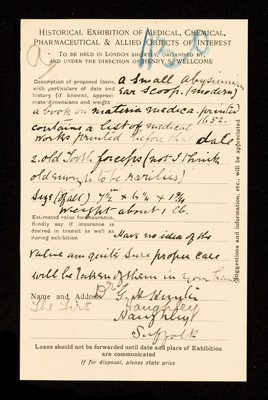 HISTORICAL EXHIBITION OF MEDICAL, CHEMICAL,
PHARMACEUTICAL & ALLIED OBJECTS OF INTEREST
TO BE HELD IN LONDON SHORTLY, ORGANISED BY,
AND UNDER THE DIRECTION OF HENRY S. WELLCOME
Description of proposed loans, a Small Abyssinian
with particulars of date and Ear Scoop. (modern)
history (if known), approximate dimensions and weight
a book on materia medica printed
1652.
contains a list of medical
works printed before that date
2. old Tooth forceps (not I think
old enough to be rarities)
Size (of all) 7½ × 6¼ × 1¾
Weight about 1 lb.
Estimated value for insurance.
Kindly say if insurance is
desired in transit as well as
during exhibition Have no idea of the
value am quite sure proper care
will be taken of them in your hands
Name and Address Dr G. H. Hunter
The Firs Haughley
Haughley
Suffolk
Loans should not be forwarded until date and place of Exhibition
are communicated
If for disposal, please state price
Suggestions and information, etc., will be appreciated